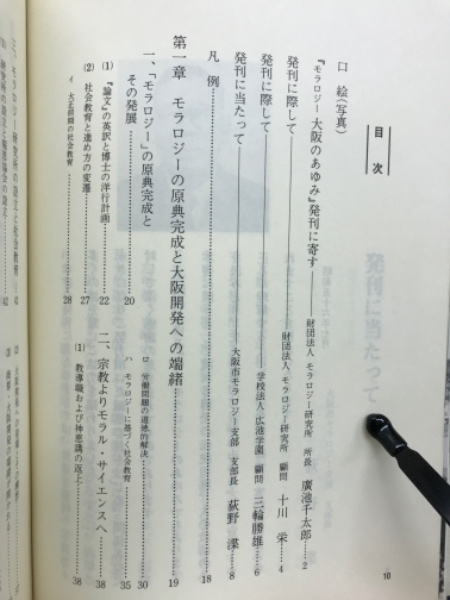 目次
口絵(写真)
『モラロジー 大阪のあゆみ』発刊に寄す 財団法人 モラロジー研究所 所長 廣池千太郎 2
発刊に際して 財団法人 モラロジー研究所 顧問 十川 栄 4
発刊に際して 学校法人 広池学園 顧問 三輪勝雄 6
発刊に当たって 大阪市モラロジー支部 支部長 荻野 渫 8
凡例 18
第一章 モラロジーの原典完成と大阪開発への端緒 19
一、「モラロジー」の原典完成と
その発展 20
(1) 『論文』の英訳と博士の洋行計画 22
(2) 社会教育と進め方の変遷 27
イ 大正前期の社会教育 28
ロ 労働問題の道徳的解決 30
ハ モラロジーに基づく社会教育 35
二、宗教よりモラル・サイエンスへ 38
(1) 教導職および神恩講の返上 38
10
発刊に当たって
モラロジー研究所の設立と社会教育 42
42